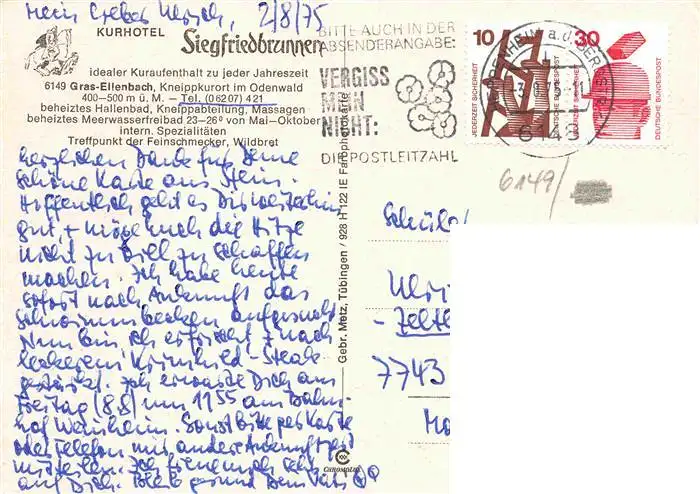 Mein lieber Ulrich, 2/8/75
KURHOTEL
Siegfriedbrunnen
idealer Kuraufenthalt zu jeder Jahreszeit
6149 Gras-Ellenbach, Kneippkurort im Odenwald
400—500 m ü. M. — Tel. (06207) 421
beheiztes Hallenbad, Kneippabteilung, Massagen
beheiztes Meerwasserfreibad 23—26° von Mai—Oktober
intern. Spezialitäten
Treffpunkt der Feinschmecker, Wildbret
herzlichen Dank für Deine
schöne Karte aus Stein.
Hoffentlich geht es Dir weiterhin
gut, + möge euch die Hitze
nicht zu viel zu schaffen
machen. Ich habe heute
sofort nach Ankunft das
Schwimmbecken aufgesucht.
Nun bin ich erfrischt + nach
leckerem Krimhild-Steak
gestärkt. Ich erwarte Dich am
Freitag (8.8) um 11 55 am Bahn-
hof Weinheim. Sonst bitte per Karte
oder Telefon mir andere Ankunftszeit
mitteilen. Ich freue mich sehr
auf Dich. Bleib gesund Dein Vati
BITTE AUCH IN DER
ABSENDERANGABE:
VERGISS
MEIN
NICHT:
DIE POSTLEITZAHL
6148
10
JEDERZEIT SICHERHEIT
DEUTSCHE BUNDESPOST
30
JEDERZEIT SICHERHEIT
DEUTSCHE BUNDESPOST
6149/
Gebr. Metz, Tübingen / 928 H 122 IE Farbphoto:
CHROMOLUX
Schül
Ulri
- Zelt
7743